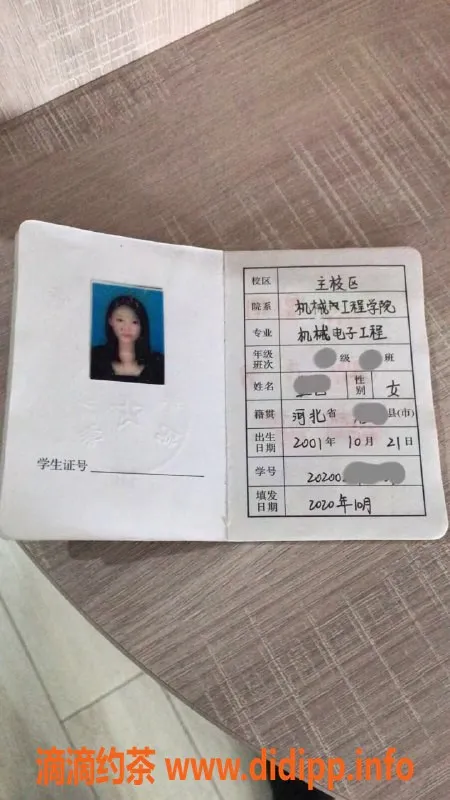 学生证号
校区 主校区
院系 机械工程学院
专业 机械电子工程
年级班次 级 班
姓名 性别 女
籍贯 河北省 县(市)
出生日期 2001年10月21日
学号 202002
填发日期 2020年10月
滴滴约茶 www.didipp.info